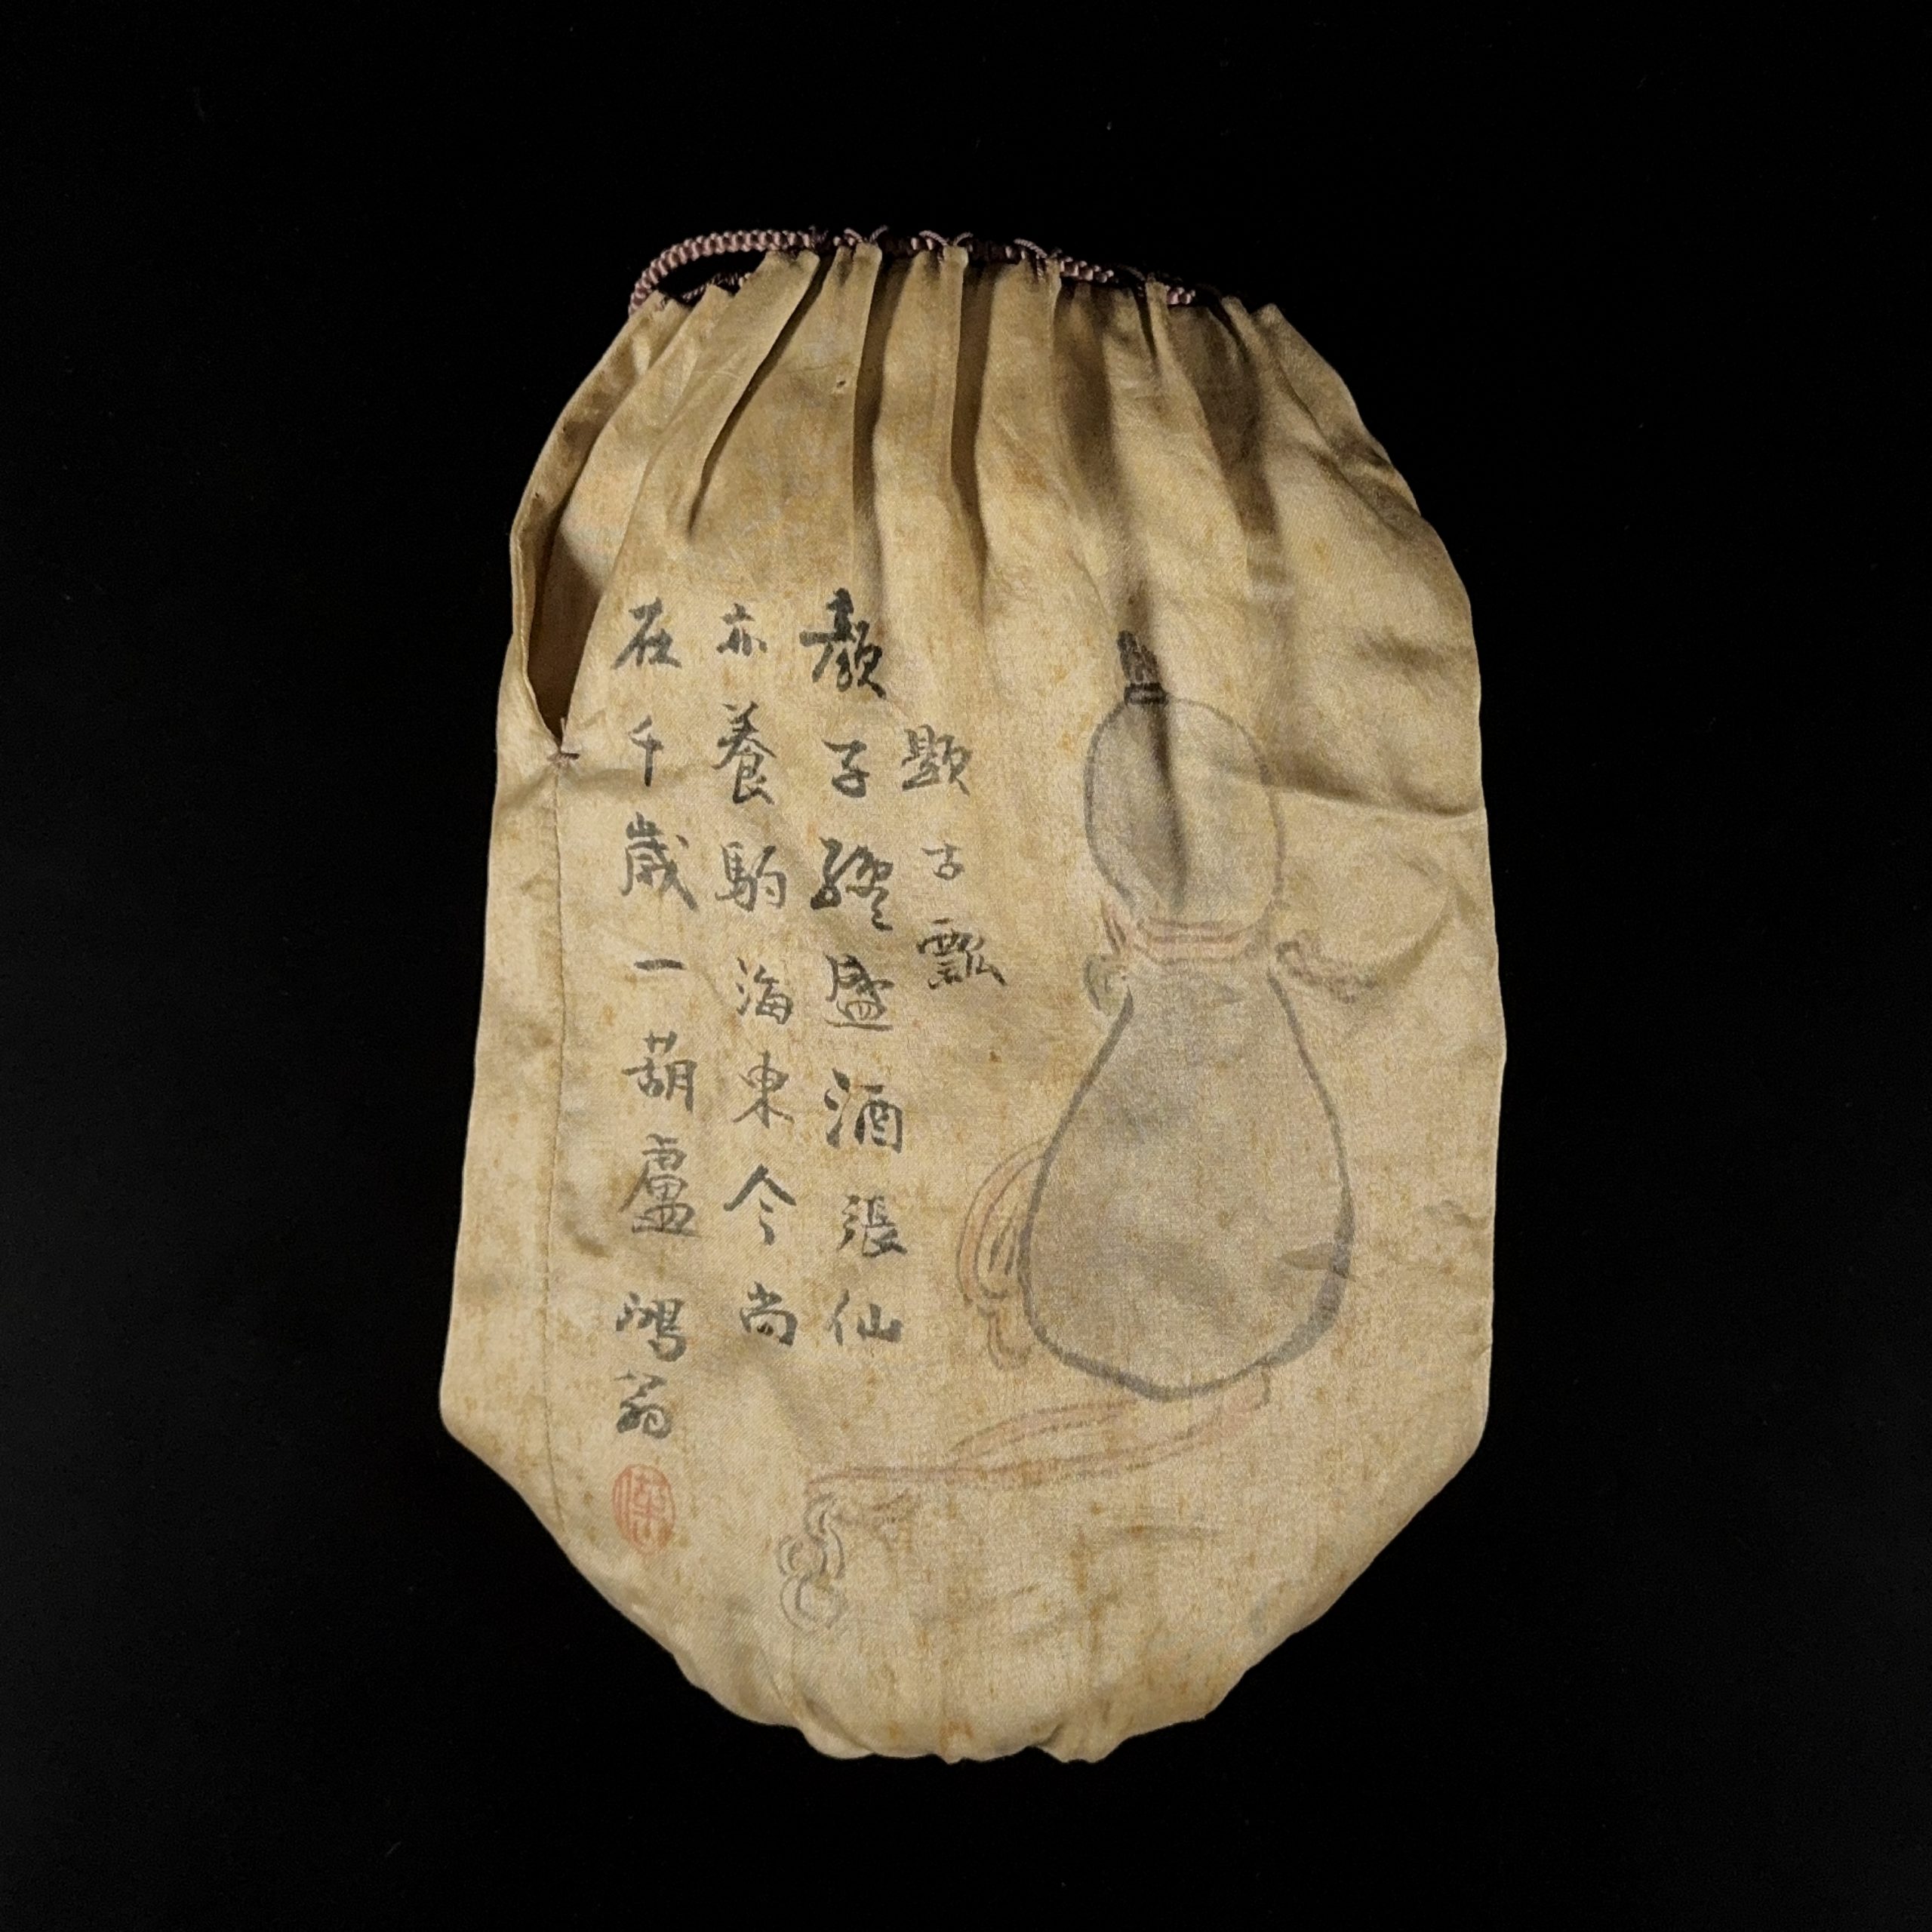 題古瓢
顔子纔盛酒張仙
亦養駒海東今尚
在千歳一葫盧
鴻翁